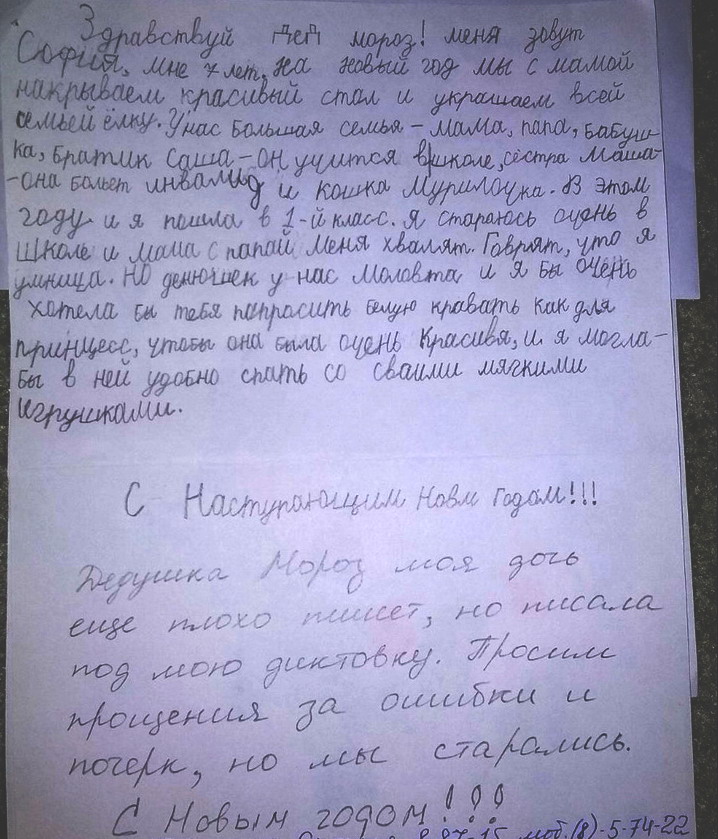 Здравствуй Дед мороз! меня зовут
София, мне 7 лет, на новый год мы с мамой
накрываем красивый стол и украшаем всей
семьей ёлку. У нас большая семья - мама, папа, бабуш-
ка, братик Саша - он учится в школе, сестра Маша-
-она бальет инвалид и кошка Мурилочка. В этом
году и я пошла в 1-й класс. Я стараюсь очень в
школе и мама с папай меня хвалят. Говрят, что я
умница. Но денюшек у нас маловта и я бы очень
хотела бы тебя папрасить белую кравать как для
принцесс, чтобы она была очень красивя, и я могла-
бы в ней удобно спать со сваими мягкими
игрушками.
С Наступающим Новм Годом!!!
Дедушка Мороз моя дочь
еще плохо пишет, но писала
под мою диктовку. Просим
прощения за ошибки и
почерк, но мы старались.
С Новым годом!!!
моб.(8)-5-74-22